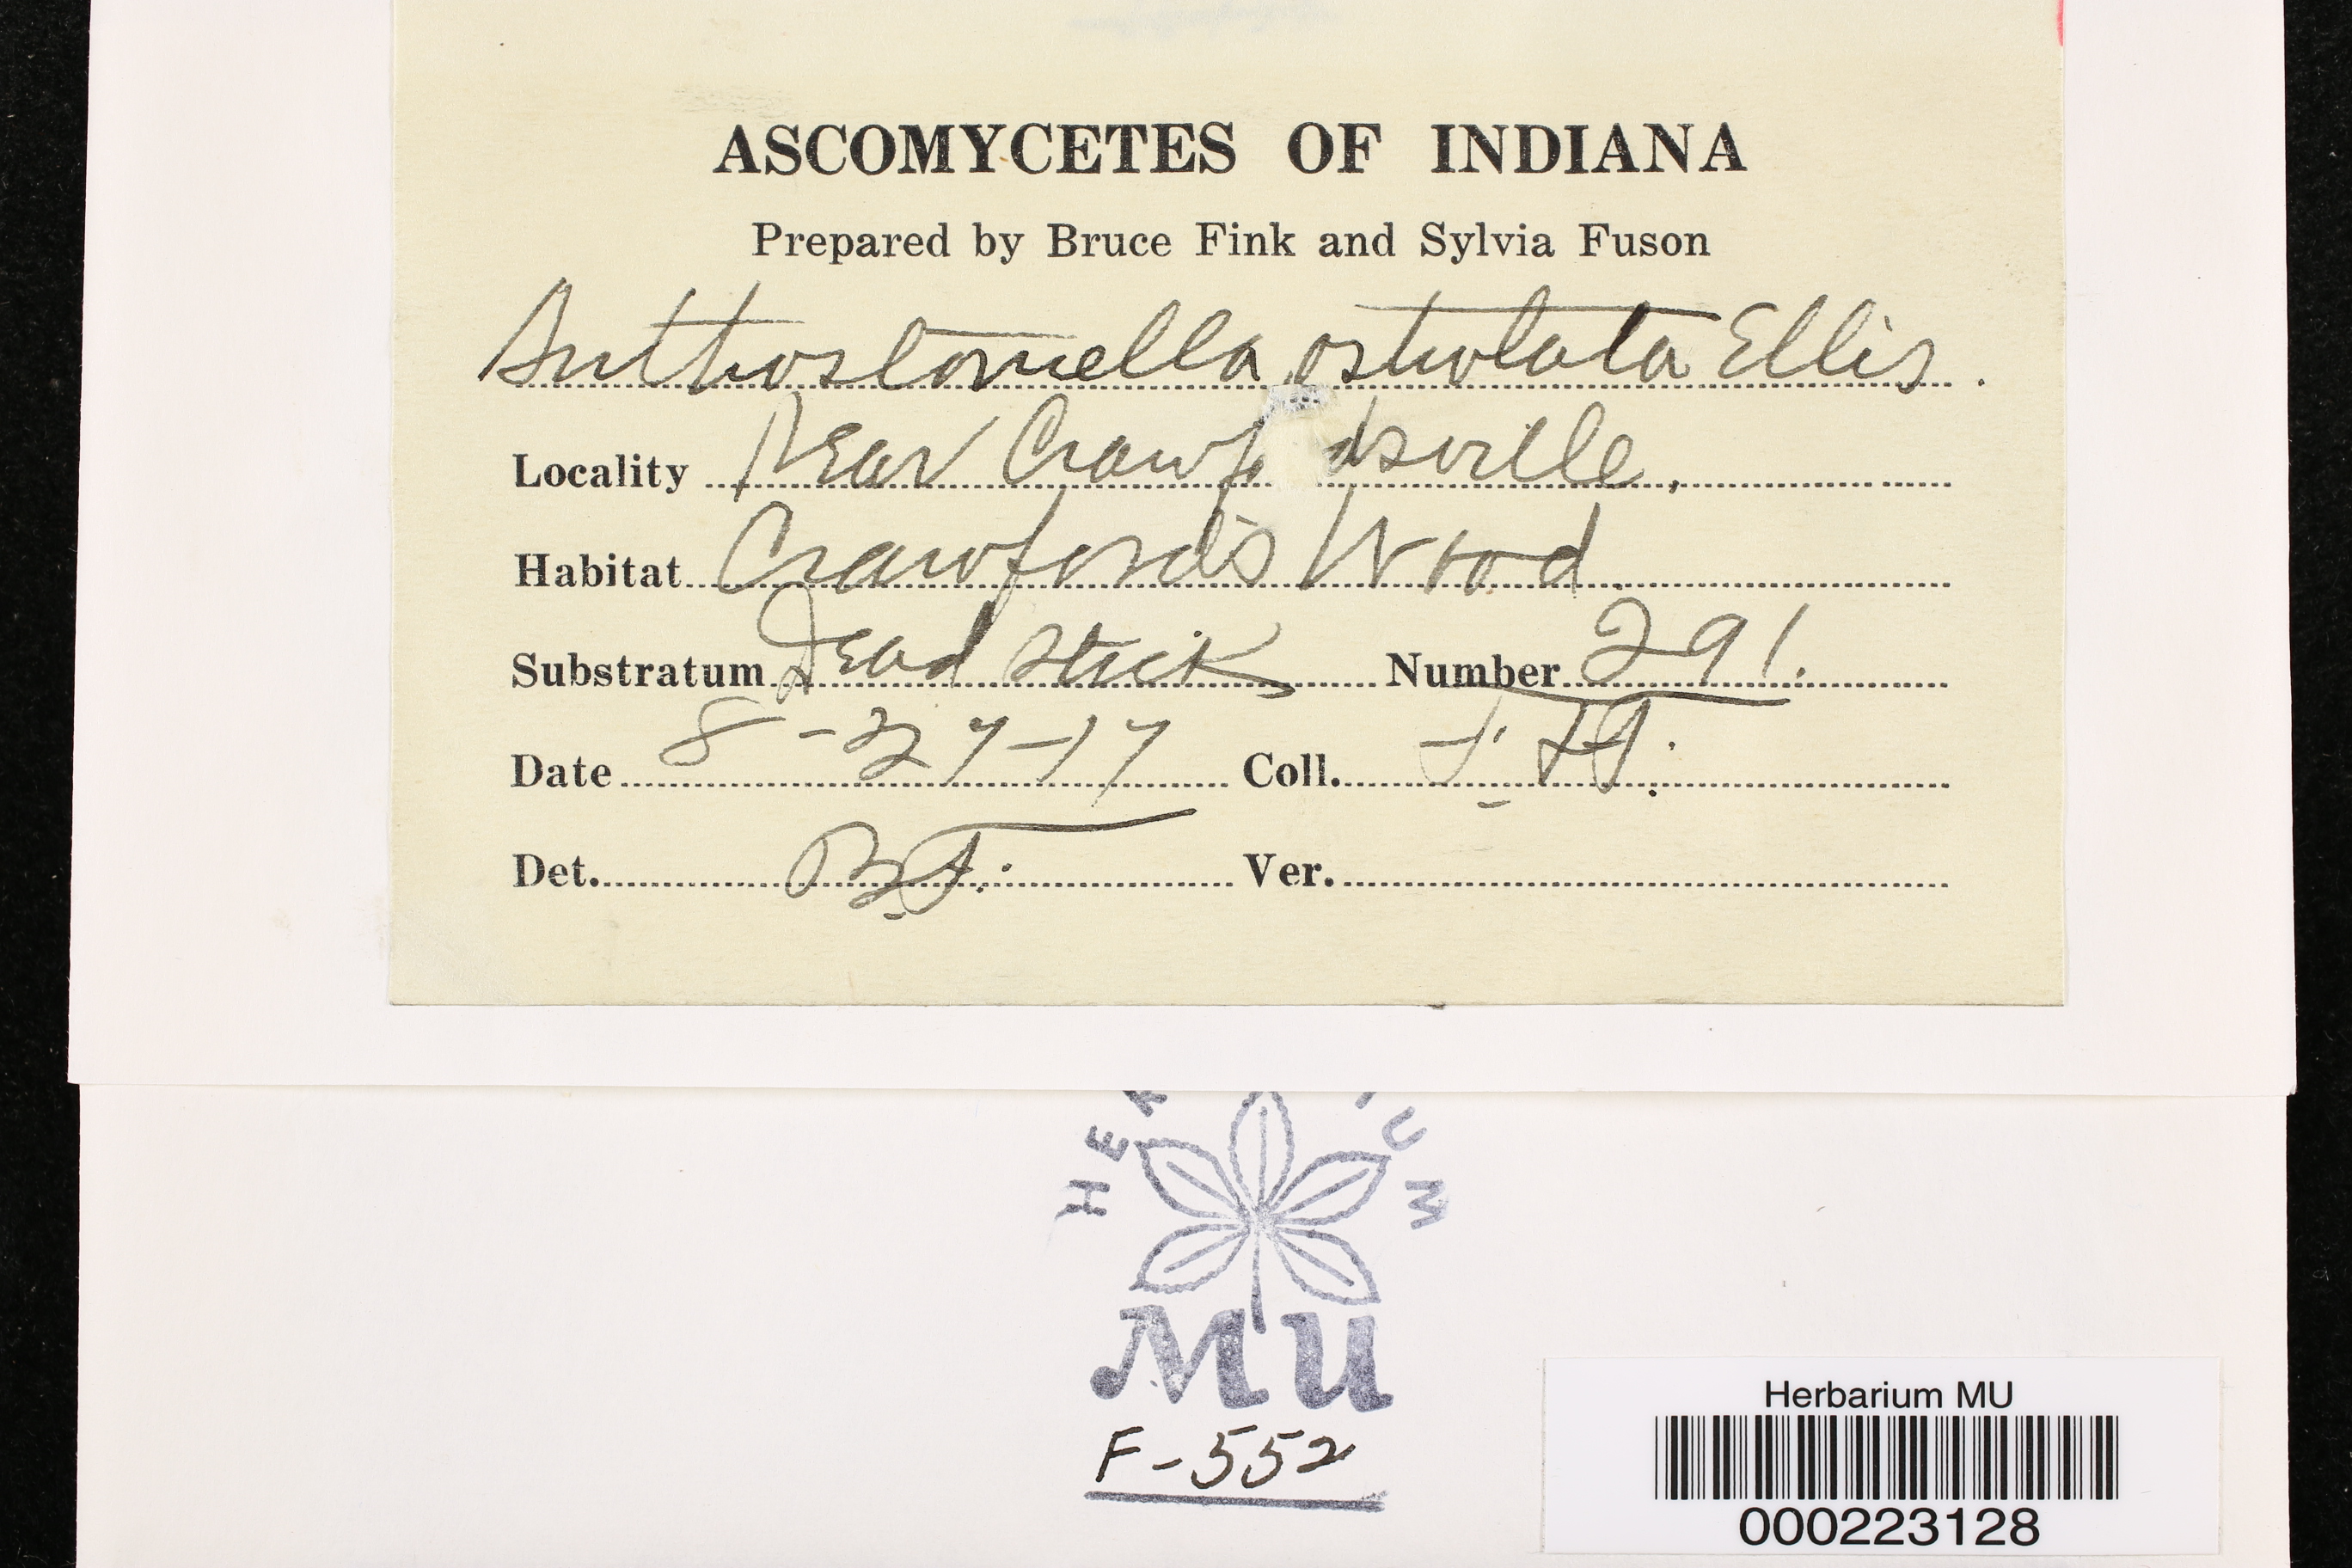 ASCOMYCETES OF INDIANA
Prepared by Bruce Fink and Sylvia Fuson
Anthostomella ostiolata Ellis.
Locality Near Crawf dsville,
Habitat Crawford's Wood
Substratum Dead stick Number 291.
Date 8-27-17 Coll.
Det. B.F. Ver.
HE U M
MU
F-552
Herbarium MU
000223128